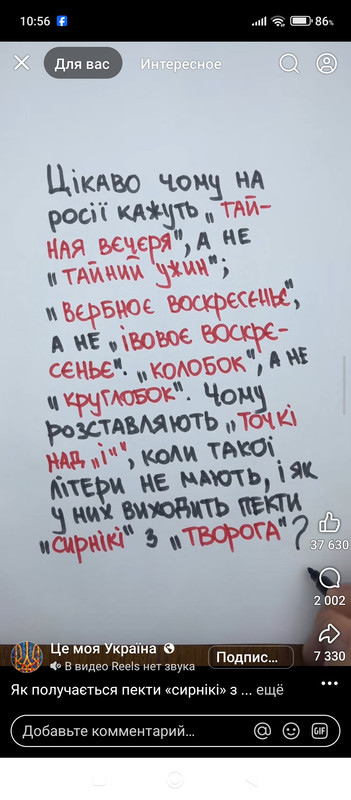 10:56
86%
Для вас
Интересное
Цікаво чому на
росії кажуть „тай-
ная вєчєря", а не
„тайний ужин";
„вєрбноє воскрєсєньє",
а не „івовоє воскрє-
сєньє". „колобок", а не
„круглобок". Чому
розставляють „точкі
над „і"", коли такої
літери не мають, і як
у них виходить пекти
„сирнікі" з „творога"?
37 630
2 002
7 330
Це моя Україна
В видео Reels нет звука
Подпис...
Як получається пекти «сирнікі» з ... ещё
Добавьте комментарий...
GIF